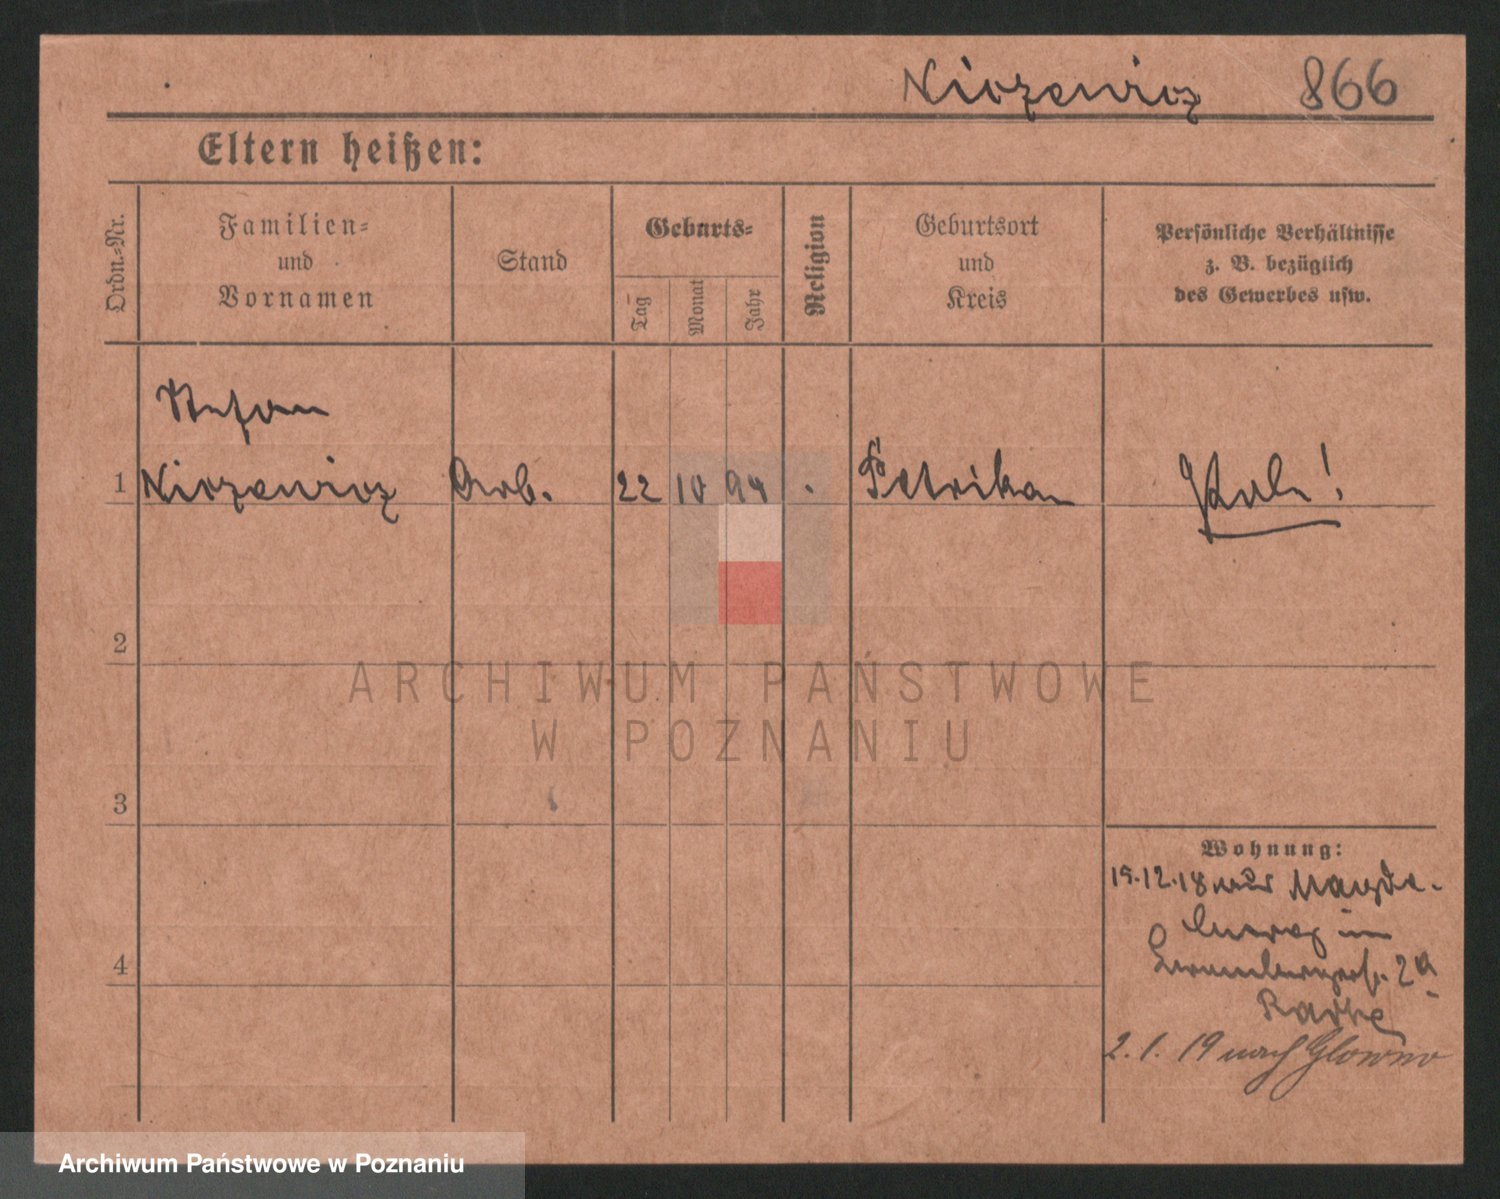 Niczewicz 866
Eltern heißen:
Ordn.=Nr.
Familien=
und
Vornamen
Stand
Geburts=
Tag
Monat
Jahr
Religion
Geburtsort
und
Kreis
Persönliche Verhältnisse
z. B. bezüglich
des Gewerbes usw.
Stefan
1 Niczewicz Arb. 22 10 94 Petrikau
2
ARCHIWUM PAŃSTWOWE
W POZNANIU
3
Wohnung:
15.12.18 aus Magde-
burg in
2a
2.1.19 nach Glowno
4
Archiwum Państwowe w Poznaniu